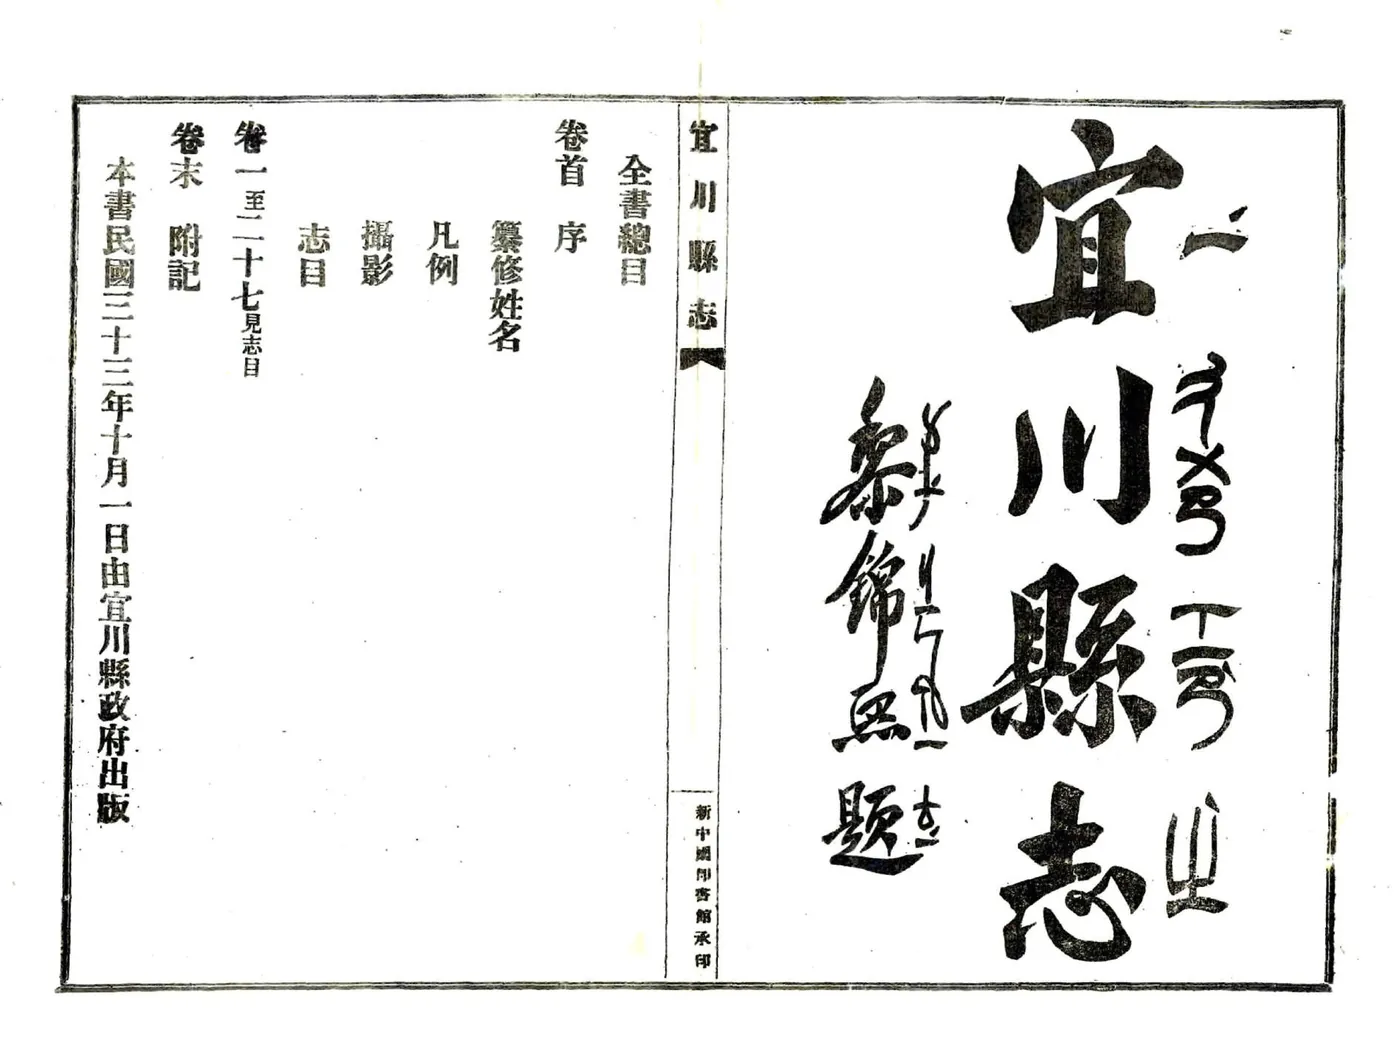 宜川縣志
黎錦熙題
宜川縣志
新中國印書館承印
全書總目
卷首 序
纂修姓名
凡例
攝影
志目
卷一至二十七見志目
卷末 附記
本書民國三十三年十月一日由宜川縣政府出版